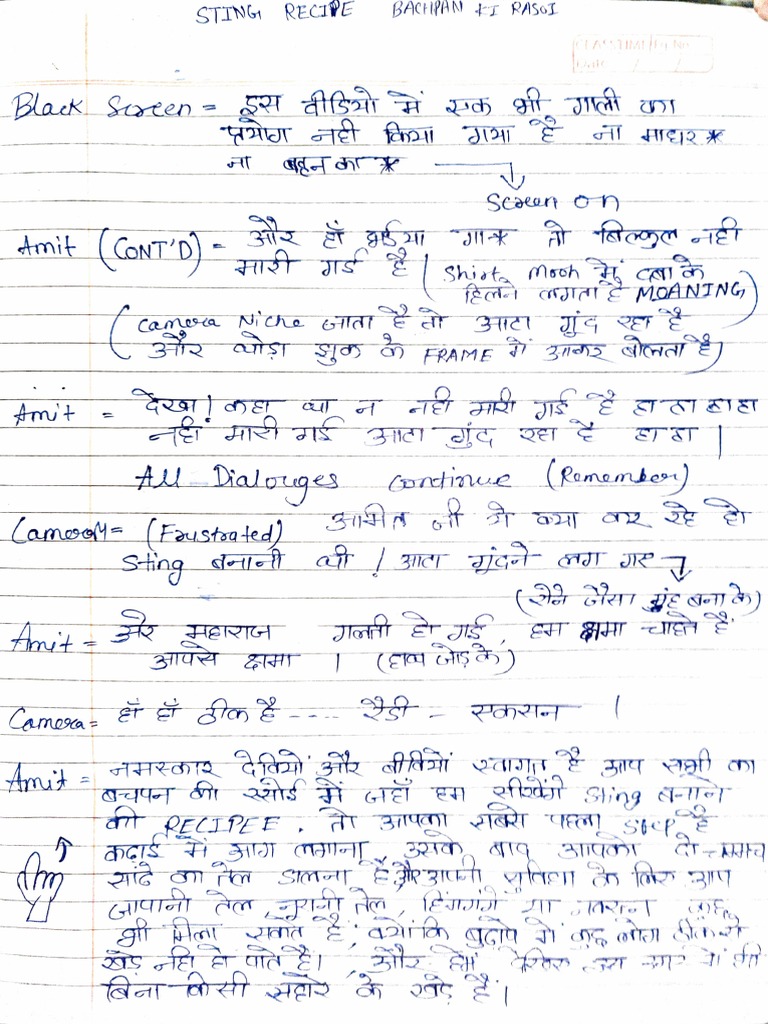 STING RECIPE BACHPAN KI RASOI
Black Screen = इस वीडियो में एक भी गाली का
प्रयोग नही किया गया है ना माधर*
ना बहन का *
Screen on
Amit (CONT'D) = और हाँ भईया गा* तो बिल्कुल नही
मारी गई है (Shirt Mooh में दबा के
हिलने लगता है MOANING)
(Camera Niche जाता है तो आटा गुंद रहा है
और थोड़ा झुक के FRAME में आकर बोलता है)
Amit = देखा! कहा था न नही मारी गई है हा हा हा हा
नही मारी गई आटा गुंद रहा है हा हा |
All Dialouges continue (Remember)
Camera = (Frustrated) अमित जी ये क्या कर रहे हो
Sting बनानी थी! आटा गुंदने लग गए
(रोने जैसा मुंह बना के)
Amit = अरे महाराज गलती हो गई, हम क्षमा चाहते हैं
आपसे क्षमा | (हाथ जोड़ के)
Camera = हाँ हाँ ठीक है ---- रैडी - एकशन |
Amit = नमस्कार देवियों और बीवियों स्वागत है आप सभी का
बचपन की रसोई में जहाँ हम सीखेंगे Sting बनाने
की RECIPEE. तो आपका सबसे पहला step है
कढ़ाई में आग लगाना उसके बाद आपको दो चम्मच
सांढे का तेल डालना है और अपनी सुविधा के लिए आप
जापानी तेल, मुरारी तेल, या
भी मिला सकते है, क्योंकि बुढ़ापे में कुछ लोग ठीक से
खड़े नही हो पाते है। और
बिना किसी सहारे के खड़े है।